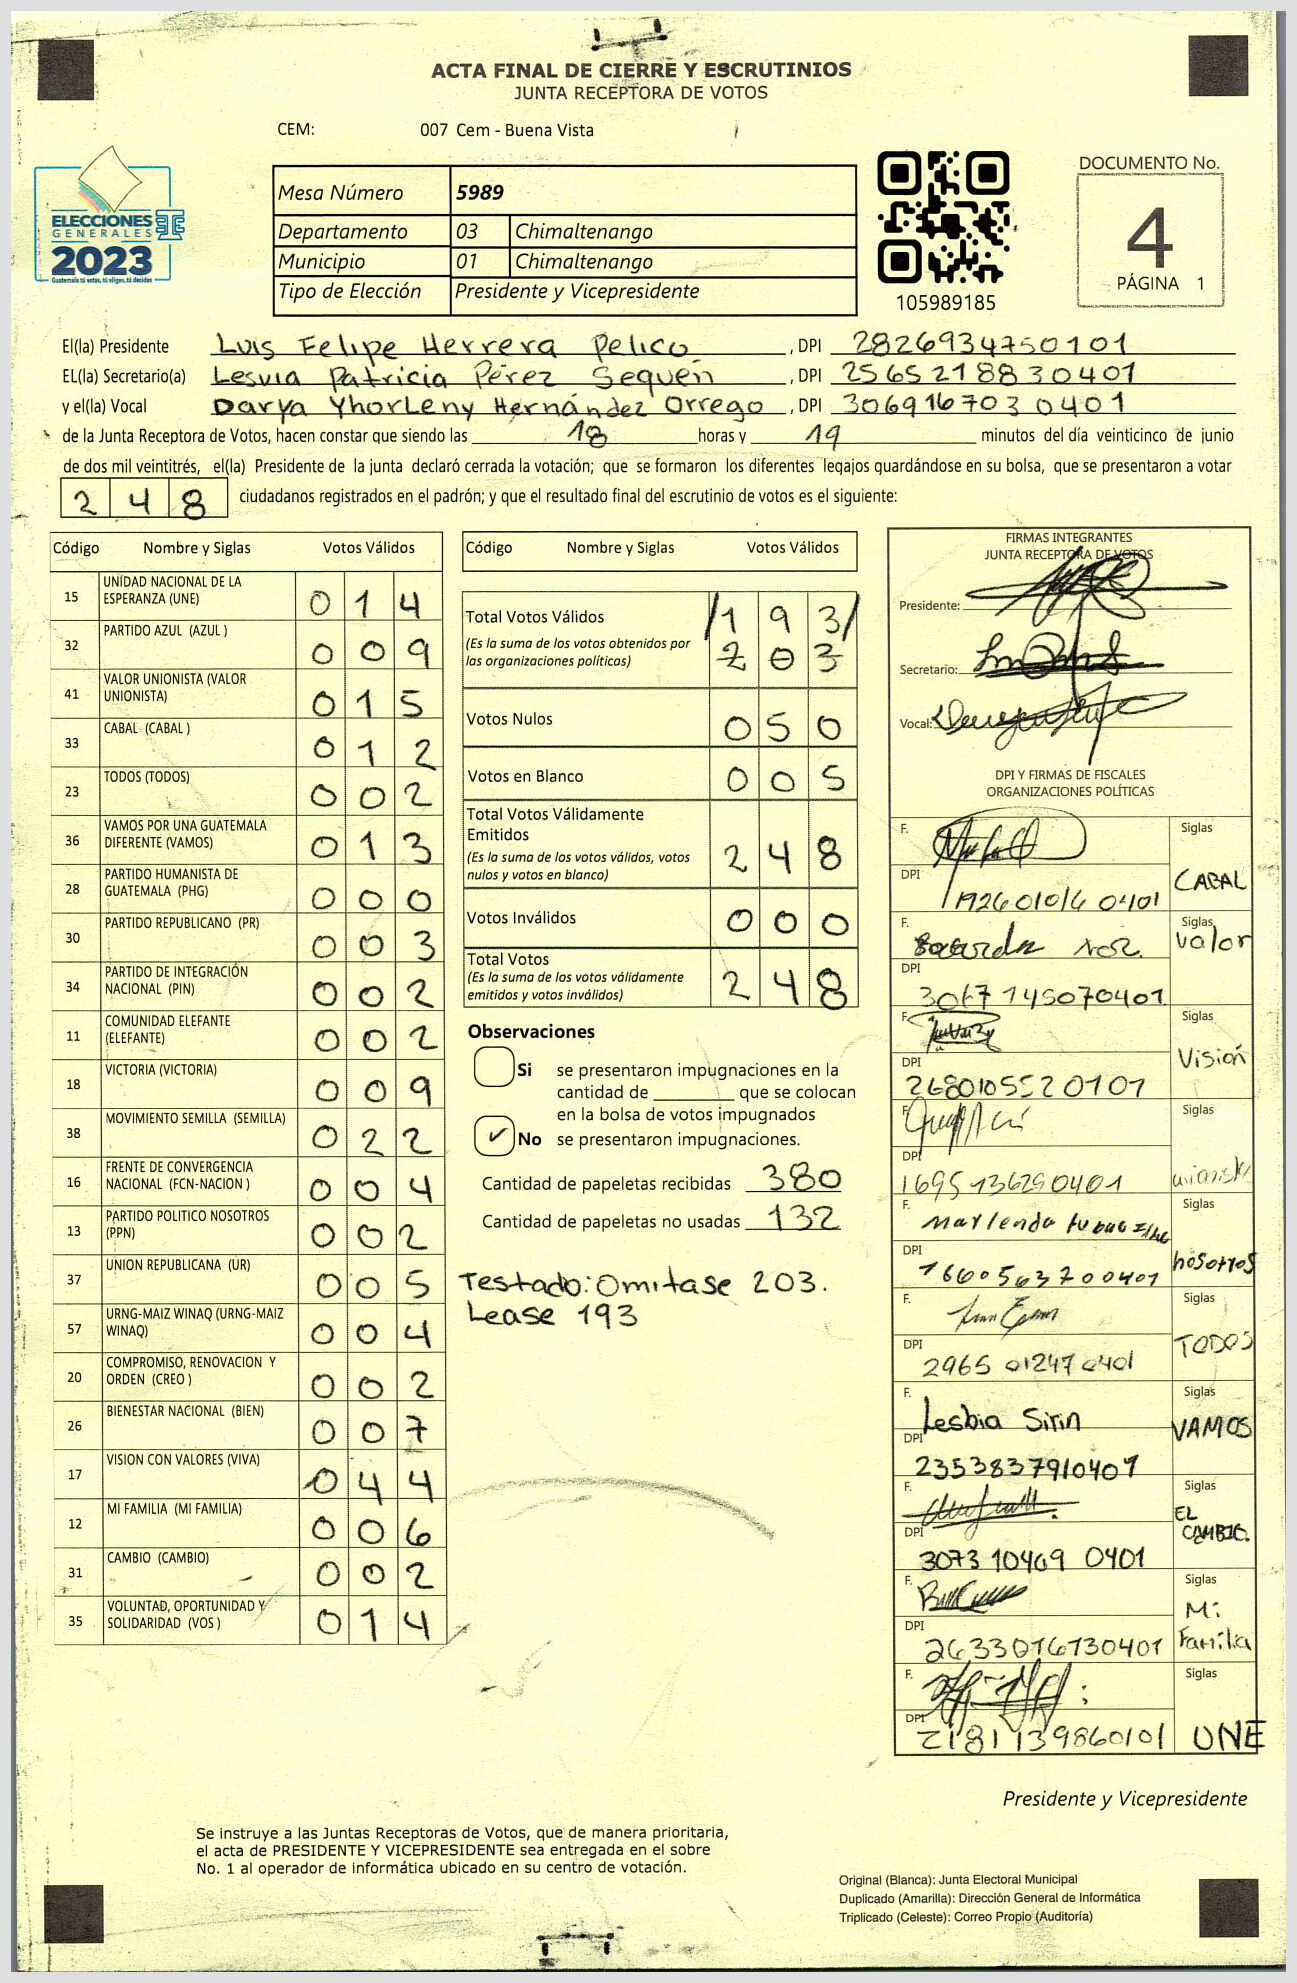 ACTA FINAL DE CIERRE Y ESCRUTINIOS
JUNTA RECEPTORA DE VOTOS
CEM: 007 Cem - Buena Vista
ELECCIONES
GENERALES
2023
Guatemala tú votas, tú eliges, tú decides
Mesa Número 5989
Departamento 03 Chimaltenango
Municipio 01 Chimaltenango
Tipo de Elección Presidente y Vicepresidente
105989185
DOCUMENTO No.
4
PÁGINA 1
El(la) Presidente Luis Felipe Herrera Pelico, DPI 2826934750101
EL(la) Secretario(a) Lesvia Patricia Pérez Sequén, DPI 2565218830401
y el(la) Vocal Darya Yhorleny Hernández Orrego, DPI 3069167030401
de la Junta Receptora de Votos, hacen constar que siendo las 18 horas y 19 minutos del día veinticinco de junio
de dos mil veintitrés, el(la) Presidente de la junta declaró cerrada la votación; que se formaron los diferentes legajos guardándose en su bolsa, que se presentaron a votar
248 ciudadanos registrados en el padrón; y que el resultado final del escrutinio de votos es el siguiente:
Código Nombre y Siglas Votos Válidos
15 UNIDAD NACIONAL DE LA ESPERANZA (UNE) 014
32 PARTIDO AZUL (AZUL ) 009
41 VALOR UNIONISTA (VALOR UNIONISTA) 015
33 CABAL (CABAL ) 012
23 TODOS (TODOS) 002
36 VAMOS POR UNA GUATEMALA DIFERENTE (VAMOS) 013
28 PARTIDO HUMANISTA DE GUATEMALA (PHG) 000
30 PARTIDO REPUBLICANO (PR) 003
34 PARTIDO DE INTEGRACIÓN NACIONAL (PIN) 002
11 COMUNIDAD ELEFANTE (ELEFANTE) 002
18 VICTORIA (VICTORIA) 009
38 MOVIMIENTO SEMILLA (SEMILLA) 022
16 FRENTE DE CONVERGENCIA NACIONAL (FCN-NACION ) 004
13 PARTIDO POLITICO NOSOTROS (PPN) 002
37 UNION REPUBLICANA (UR) 005
57 URNG-MAIZ WINAQ (URNG-MAIZ WINAQ) 004
20 COMPROMISO, RENOVACION Y ORDEN (CREO ) 002
26 BIENESTAR NACIONAL (BIEN) 007
17 VISION CON VALORES (VIVA) 044
12 MI FAMILIA (MI FAMILIA) 006
31 CAMBIO (CAMBIO) 002
35 VOLUNTAD, OPORTUNIDAD Y SOLIDARIDAD (VOS ) 014
Código Nombre y Siglas Votos Válidos
Total Votos Válidos /193/
(Es la suma de los votos obtenidos por las organizaciones políticas) 203
Votos Nulos 050
Votos en Blanco 005
Total Votos Válidamente Emitidos
(Es la suma de los votos válidos, votos nulos y votos en blanco) 248
Votos Inválidos 000
Total Votos
(Es la suma de los votos válidamente emitidos y votos inválidos) 248
Observaciones
Si se presentaron impugnaciones en la
cantidad de ________ que se colocan
en la bolsa de votos impugnados
✓ No se presentaron impugnaciones.
Cantidad de papeletas recibidas 380
Cantidad de papeletas no usadas 132
Testado: Omitase 203.
Lease 193
FIRMAS INTEGRANTES
JUNTA RECEPTORA DE VOTOS
Presidente:
Secretario:
Vocal:
DPI Y FIRMAS DE FISCALES
ORGANIZACIONES POLÍTICAS
F. Siglas
DPI CABAL
F. Siglas
Valor
DPI
F. Siglas
DPI Visión
2680105520101
F. Siglas
DPI
1695136290401
F. Siglas
DPI nosotros
1660563700401
F. Siglas
DPI TODOS
2965 01247 0401
F. Lesbia Sirin Siglas
DPI VAMOS
2353837910401
F. Siglas
DPI EL CAMBIO.
3073 10469 0401
F. Siglas
DPI Mi Familia
2633016130401
F. Siglas
DPI
2181139860101 UNE
Presidente y Vicepresidente
Se instruye a las Juntas Receptoras de Votos, que de manera prioritaria,
el acta de PRESIDENTE Y VICEPRESIDENTE sea entregada en el sobre
No. 1 al operador de informática ubicado en su centro de votación.
Original (Blanca): Junta Electoral Municipal
Duplicado (Amarilla): Dirección General de Informática
Triplicado (Celeste): Correo Propio (Auditoría)